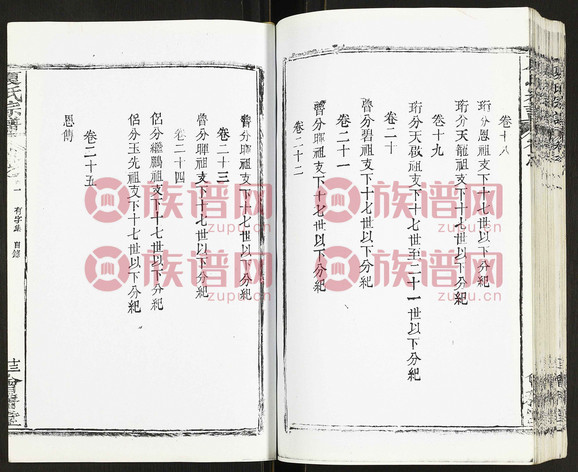 卷十八
珩分恩祖支下十七世以下分紀
珩分天龍祖支下十七世以下分紀
卷十九
珩分天啟祖支下十七世至二十一世以下分紀
卷二十
魯分碧祖支下十七世以下分紀
卷二十一
魯分暉祖支下十七世以下分紀
卷二十二
魯分暉祖支下十七世以下分紀
卷二十三
魯分暉祖支下十七世以下分紀
卷二十四
侶分繼鵬祖支下十七世以下分紀
侶分玉先祖支下十七世以下分紀
卷二十五
恩傳
夏氏宗譜
卷之一
有字集 目錄
十三
會譜堂
族谱网
zupu.cn
族谱网
zupu.cn
族谱网
zupu.cn
族谱网
zupu.cn